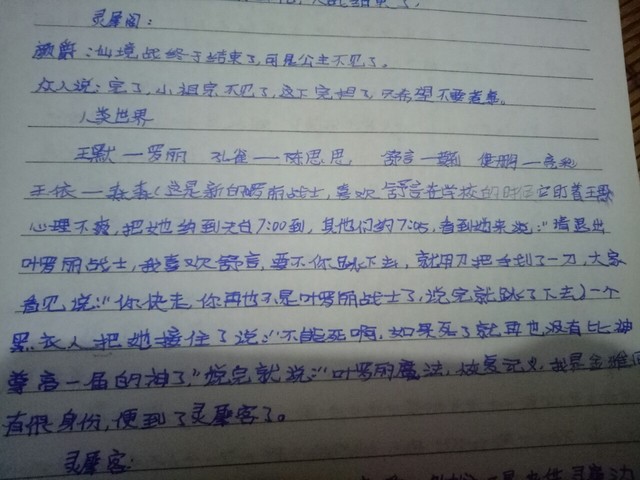 灵犀阁：
颜爵：仙境战终于结束了，可是公主不见了。
众人说：完了，小祖宗不见了，这下完担了只希望不要
人类世界
王默一罗丽 孔雀一陈思思 舒言一 建鹏一亮彩
王依一森森（这是新的罗丽战士，喜欢舒言在学校的时候它盯着王默
心理不爽，把她约到天台7:00到，其他们约7:05，看到她来说：“指退出
叶罗丽战士，我喜欢舒言，要不你跳下去，就用刀把手划了一刀，大家
看见说：“你快走你再也不是叶罗丽战士了，说完就跳了下去）一个
黑衣人把她接住了说：“不能死啊，如果死了就再也没有比神
尊高一届的神了，”说完就说：“叶罗丽魔法，恢复记义，我是金
有很身份，便到了灵犀客了。
灵犀客：